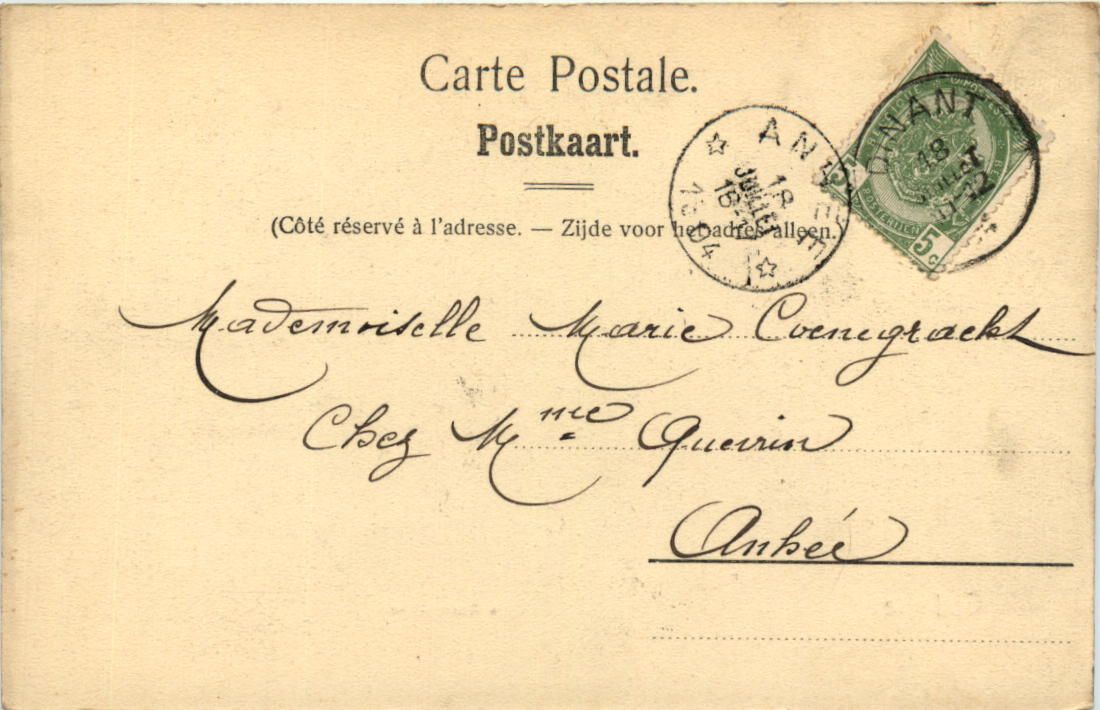 Carte Postale.
Postkaart.
(Côté réservé à l'adresse. — Zijde voor het adres alleen.)
ANHÉE
18
JUILLET
1904
DINANT
18
JUILLET
5c
5
Mademoiselle Marie Coenegracht
Chez Mme Quevrin
Anhée